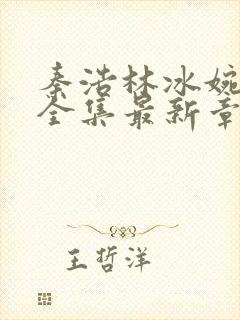 秦浩林冰婉
全集最新章
王哲洋